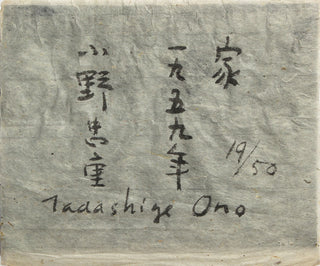 家
一九五九年
小野忠重
19/50
Tadashige Ono